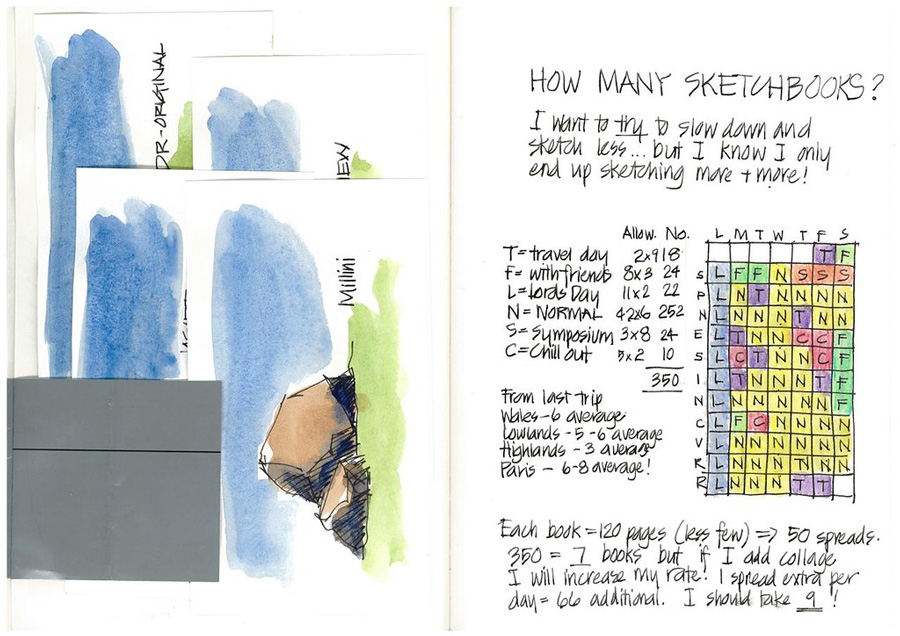 DR-ORIGINAL
Millini
HOW MANY SKETCHBOOKS?
I want to try to slow down and
sketch less... but I know I only
end up sketching more + more!
Allow. No.
T= travel day 2x9 18
F= with friends 8x3 24
L= Lords Day 11x2 22
N= NORMAL 42x6 252
S= Symposium 3x8 24
C= Chill out 5x2 10
350
From last trip
Wales - 6 average
Lowlands - 5-6 average
Highlands - 3 average
Paris - 6-8 average!
L M T W T F S
T F
S L F F N S S S
P L N T N N N N
N L N N N T N N
E L T N N C C F
S L C T N N C F
I L T N N N T F
N L N N N N N F
C L F C N N N N
V L N N N N N N
R L N N N N N N
R L N N N T T
Each book = 120 pages (less few) => 50 spreads.
350 = 7 books but if I add collage
I will increase my rate! 1 spread extra per
day = 66 additional. I should take 9!